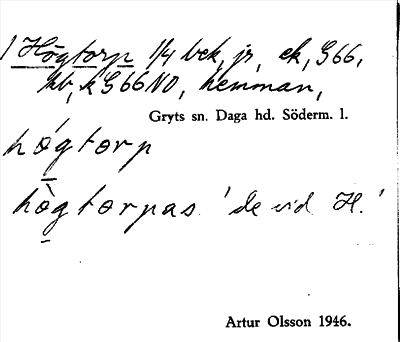 1 Högtorp 1/4 bek, jr, ek, G66,
kb, k G66NO, hemman,
Gryts sn. Daga hd. Söderm. l.
högtorp
högtorpas 'de vid H.'
Artur Olsson 1946.